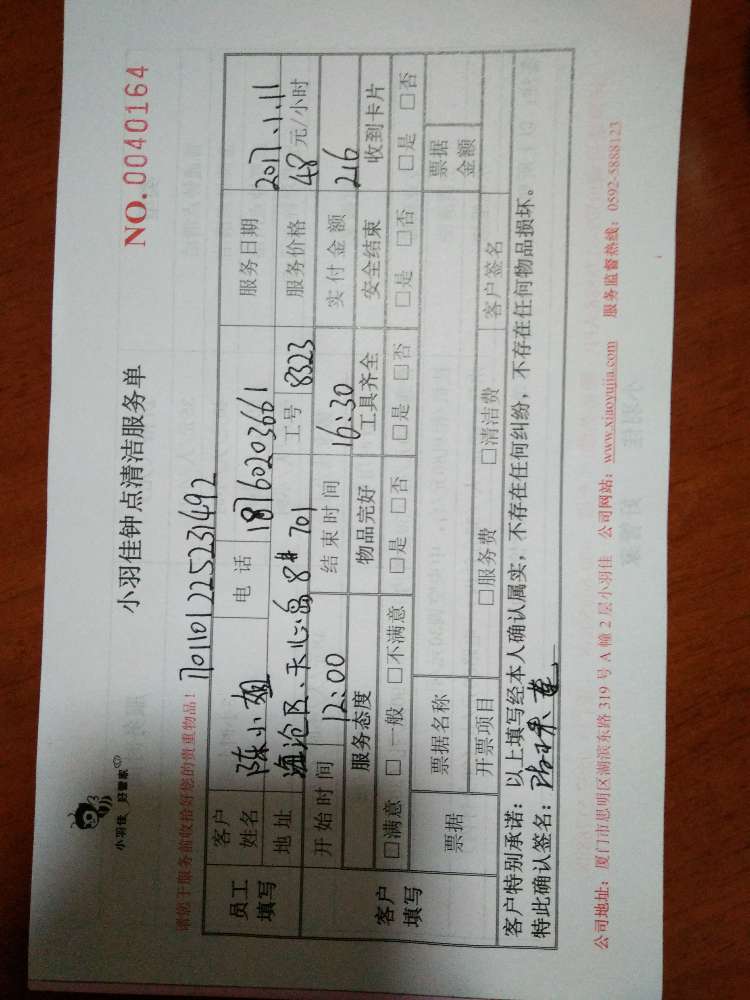 小羽佳 好管家
小羽佳钟点清洁服务单
NO.0040164
请您于服务前收拾好您的贵重物品！
1701101225231492
员工填写 客户姓名 陈小姐 电话 18760203661 服务日期 2017.1.11
地址 海沧区、天心岛8#701 工号 8323 服务价格 48元/小时
客户填写 开始时间 12:00 结束时间 16:30 实付金额 216
服务态度 物品完好 工具齐全 安全结束 收到卡片
□满意 □一般 □不满意 □是 □否 □是 □否 □是 □否 □是 □否
票据 票据名称 票据金额
开票项目 □服务费 □清洁费 客户签名
客户特别承诺：以上填写经本人确认属实，不存在任何纠纷，不存在任何物品损坏。
特此确认签名：
公司地址：厦门市思明区湖滨东路319号A幢2层小羽佳 公司网站：www.xiaoyujia.com 服务监督热线：0592-5888123